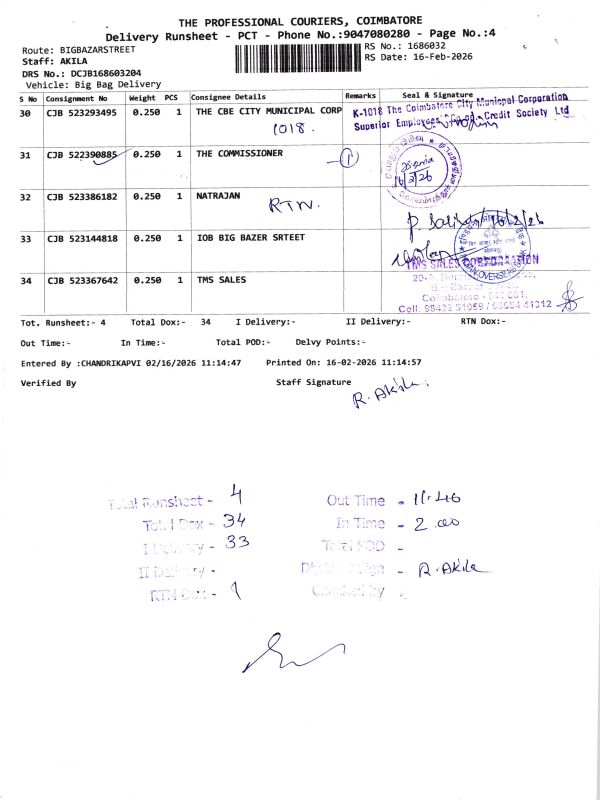 THE PROFESSIONAL COURIERS, COIMBATORE
Delivery Runsheet - PCT - Phone No.:9047080280 - Page No.:4
Route: BIGBAZARSTREET
RS No.: 1686032
Staff: AKILA
RS Date: 16-Feb-2026
DRS No.: DCJB168603204
Vehicle: Big Bag Delivery
S No Consignment No Weight PCS Consignee Details Remarks Seal & Signature
30 CJB 523293495 0.250 1 THE CBE CITY MUNICIPAL CORP
1018.
K-1018 The Coimbatore City Municipal Corporation
Superior Employees' Credit Society Ltd
31 CJB 522390885 0.250 1 THE COMMISSIONER
1
16/2/26
32 CJB 523386182 0.250 1 NATRAJAN
RTN.
33 CJB 523144818 0.250 1 IOB BIG BAZER SRTEET
34 CJB 523367642 0.250 1 TMS SALES
TMS SALES CORPORATION
Tot. Runsheet:- 4 Total Dox:- 34 I Delivery:- II Delivery:- RTN Dox:-
Out Time:- In Time:- Total POD:- Delvy Points:-
Entered By :CHANDRIKAPVI 02/16/2026 11:14:47 Printed On: 16-02-2026 11:14:57
Verified By Staff Signature
R. Akila.
Total Runsheet - 4
Out Time - 11.46
Total Dox - 34
In Time - 2.00
I Delivery - 33
Total POD -
II Delivery -
R. Akila
RTN Dox - 1